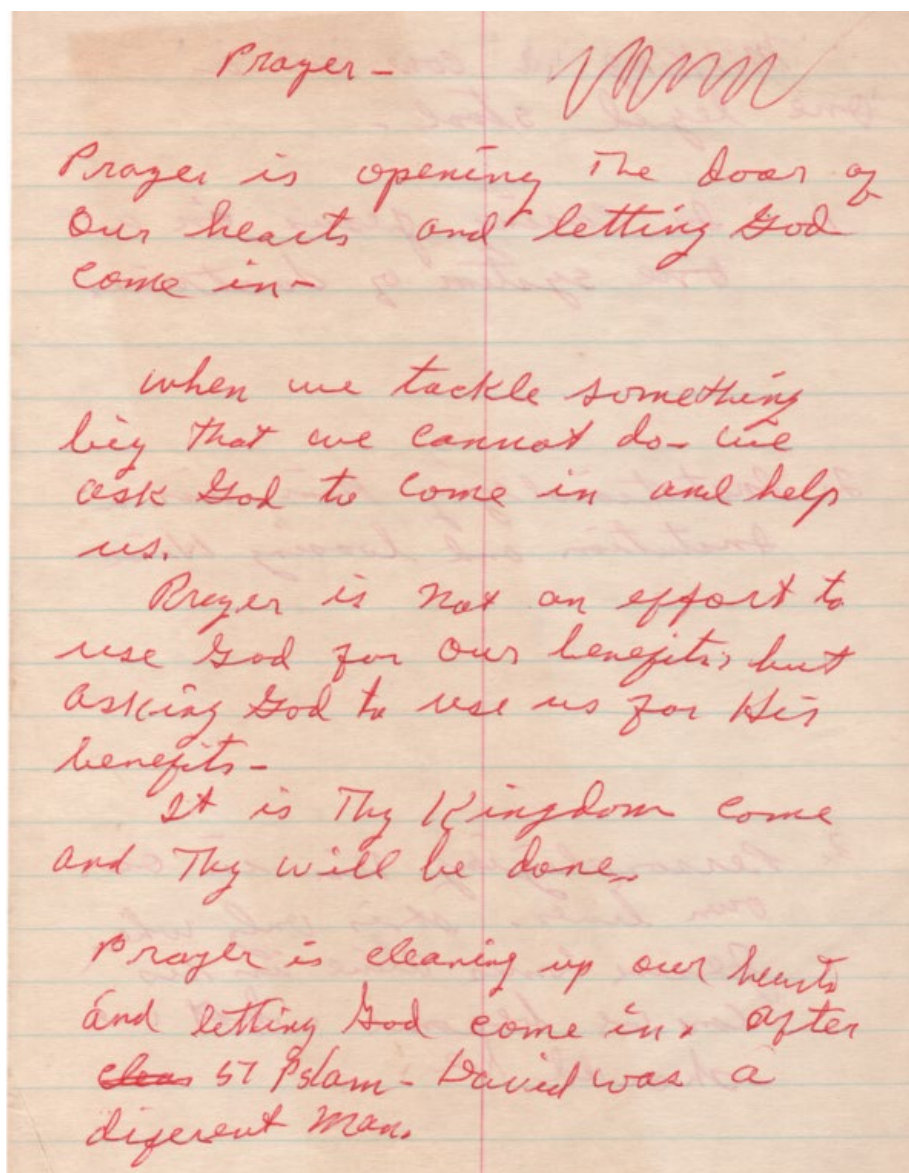 Prayer -
Prayer is opening The door of
our hearts and letting God
come in -
when we tackle something
big That we cannot do - we
ask God to come in and help
us.
Prayer is not an effort to
use God for our benefits, but
asking God to use us for His
benefits -
It is Thy Kingdom come
and Thy will be done.
Prayer is cleaning up our hearts
and letting God come in. After
51 Pslam - David was a
diferent Man.